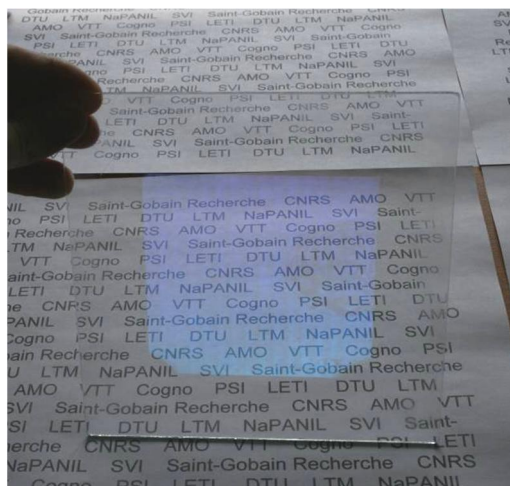 DTU LTM NaPANIL SVI Saint-Gobain Recherche
AMO VTT Cogno PSI LETI DTU LTM NaPANIL
SVI Saint-Gobain Recherche CNRS AMO VTT
PSI LETI DTU LTM NaPANIL SVI Saint-Gobain
CNRS AMO VTT Cogno PSI LETI DTU
PSI LETI DTU LTM NaPANIL
Recherche CNRS AMO VTT Cogno PSI
NaPANIL SVI Saint-Gobain Recherche
VTT Cogno PSI LETI DTU LTM
Saint-Gobain Recherche CNRS AMO VTT
LETI DTU LTM NaPANIL SVI Saint-
CNRS AMO VTT Cogno PSI LETI
SVI Saint-Gobain Recherche CNRS
VTT Cogno PSI LETI DTU LTM NaPANIL
NIL SVI Saint-Gobain Recherche CNRS AMO VTT
PSI LETI DTU LTM NaPANIL SVI Saint-
Recherche CNRS AMO VTT Cogno PSI LETI
LTM NaPANIL SVI Saint-Gobain Recherche CNRS
VTT Cogno PSI LETI DTU LTM NaPANIL
aint-Gobain Recherche CNRS AMO VTT Cogno
LETI DTU LTM NaPANIL SVI Saint-Gobain
CNRS AMO VTT Cogno PSI LETI DTU
PANIL SVI Saint-Gobain Recherche CNRS AMO
Cogno PSI LETI DTU LTM NaPANIL SVI
ain Recherche CNRS AMO VTT Cogno PSI
LTM NaPANIL SVI Saint-Gobain Recherche
AMO VTT Cogno PSI LETI DTU LTM
SVI Saint-Gobain Recherche CNRS AMO VTT
SI LETI DTU LTM NaPANIL SVI Saint-
erche CNRS AMO VTT Cogno PSI LETI
NaPANIL SVI Saint-Gobain Recherche CNRS
Cogno PSI LETI DTU LTM NaPANIL